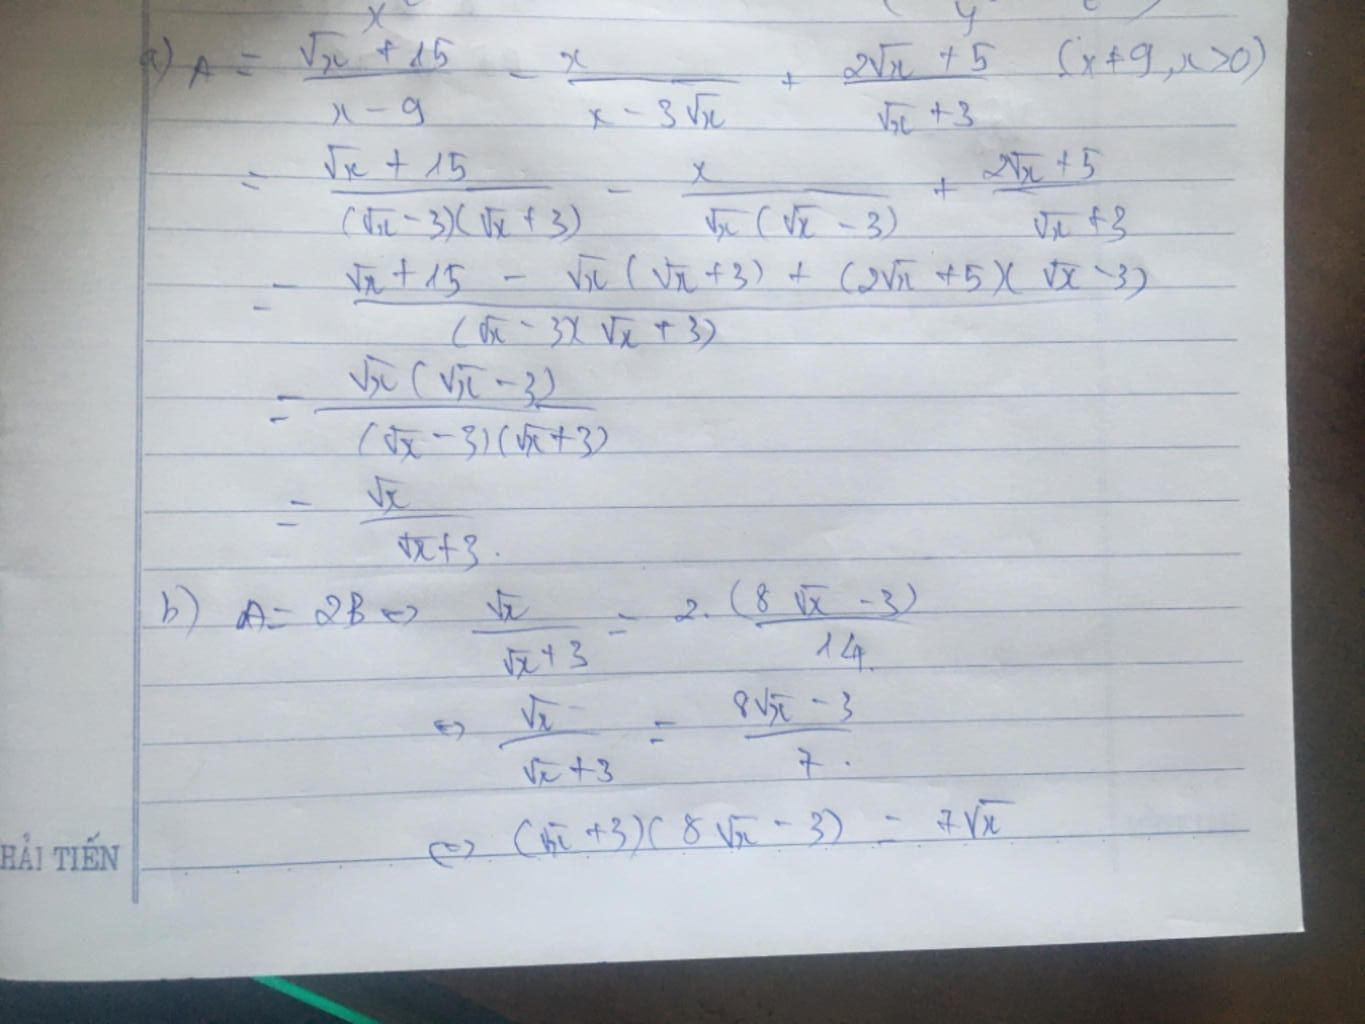 x y
a) A = (√x + 15)/(x - 9) - x/(x - 3√x) + (2√x + 5)/(√x + 3) (x ≠ 9, x > 0)
= (√x + 15)/((√x - 3)(√x + 3)) - x/(√x(√x - 3)) + (2√x + 5)/(√x + 3)
= (√x + 15 - √x(√x + 3) + (2√x + 5)(√x - 3))/((√x - 3)(√x + 3))
= (√x(√x - 3))/((√x - 3)(√x + 3))
= √x/(√x + 3).
b) A = 2B ⇔ √x/(√x + 3) = 2.(8√x - 3)/14.
⇔ √x/(√x + 3) = (8√x - 3)/7.
⇔ (√x + 3)(8√x - 3) = 7√x
HẢI TIẾN